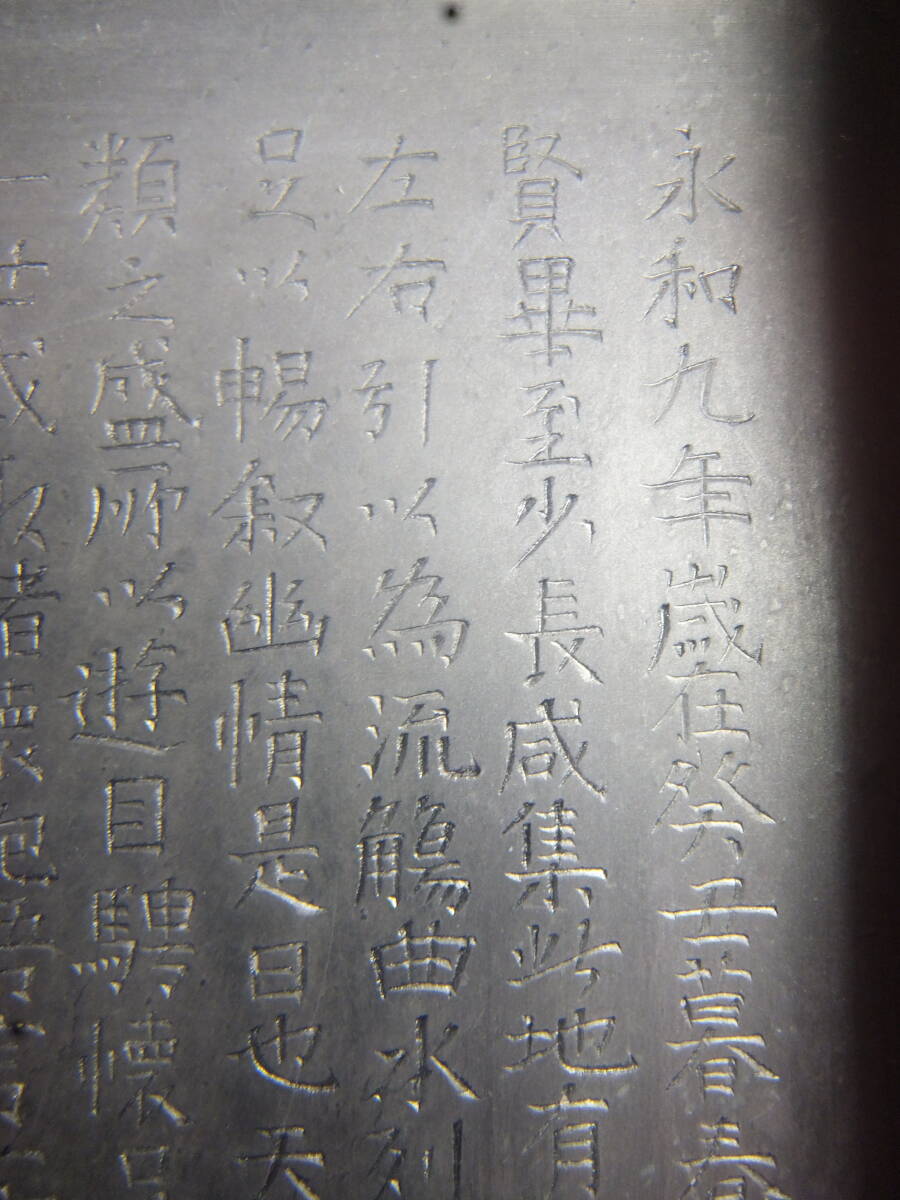 永和九年歲在癸丑暮春
賢畢至少長咸集此地有
左右引以為流觴曲水列
足以暢叙幽情是日也天
類之盛所以遊目騁懷
一世或取諸懷抱悟言